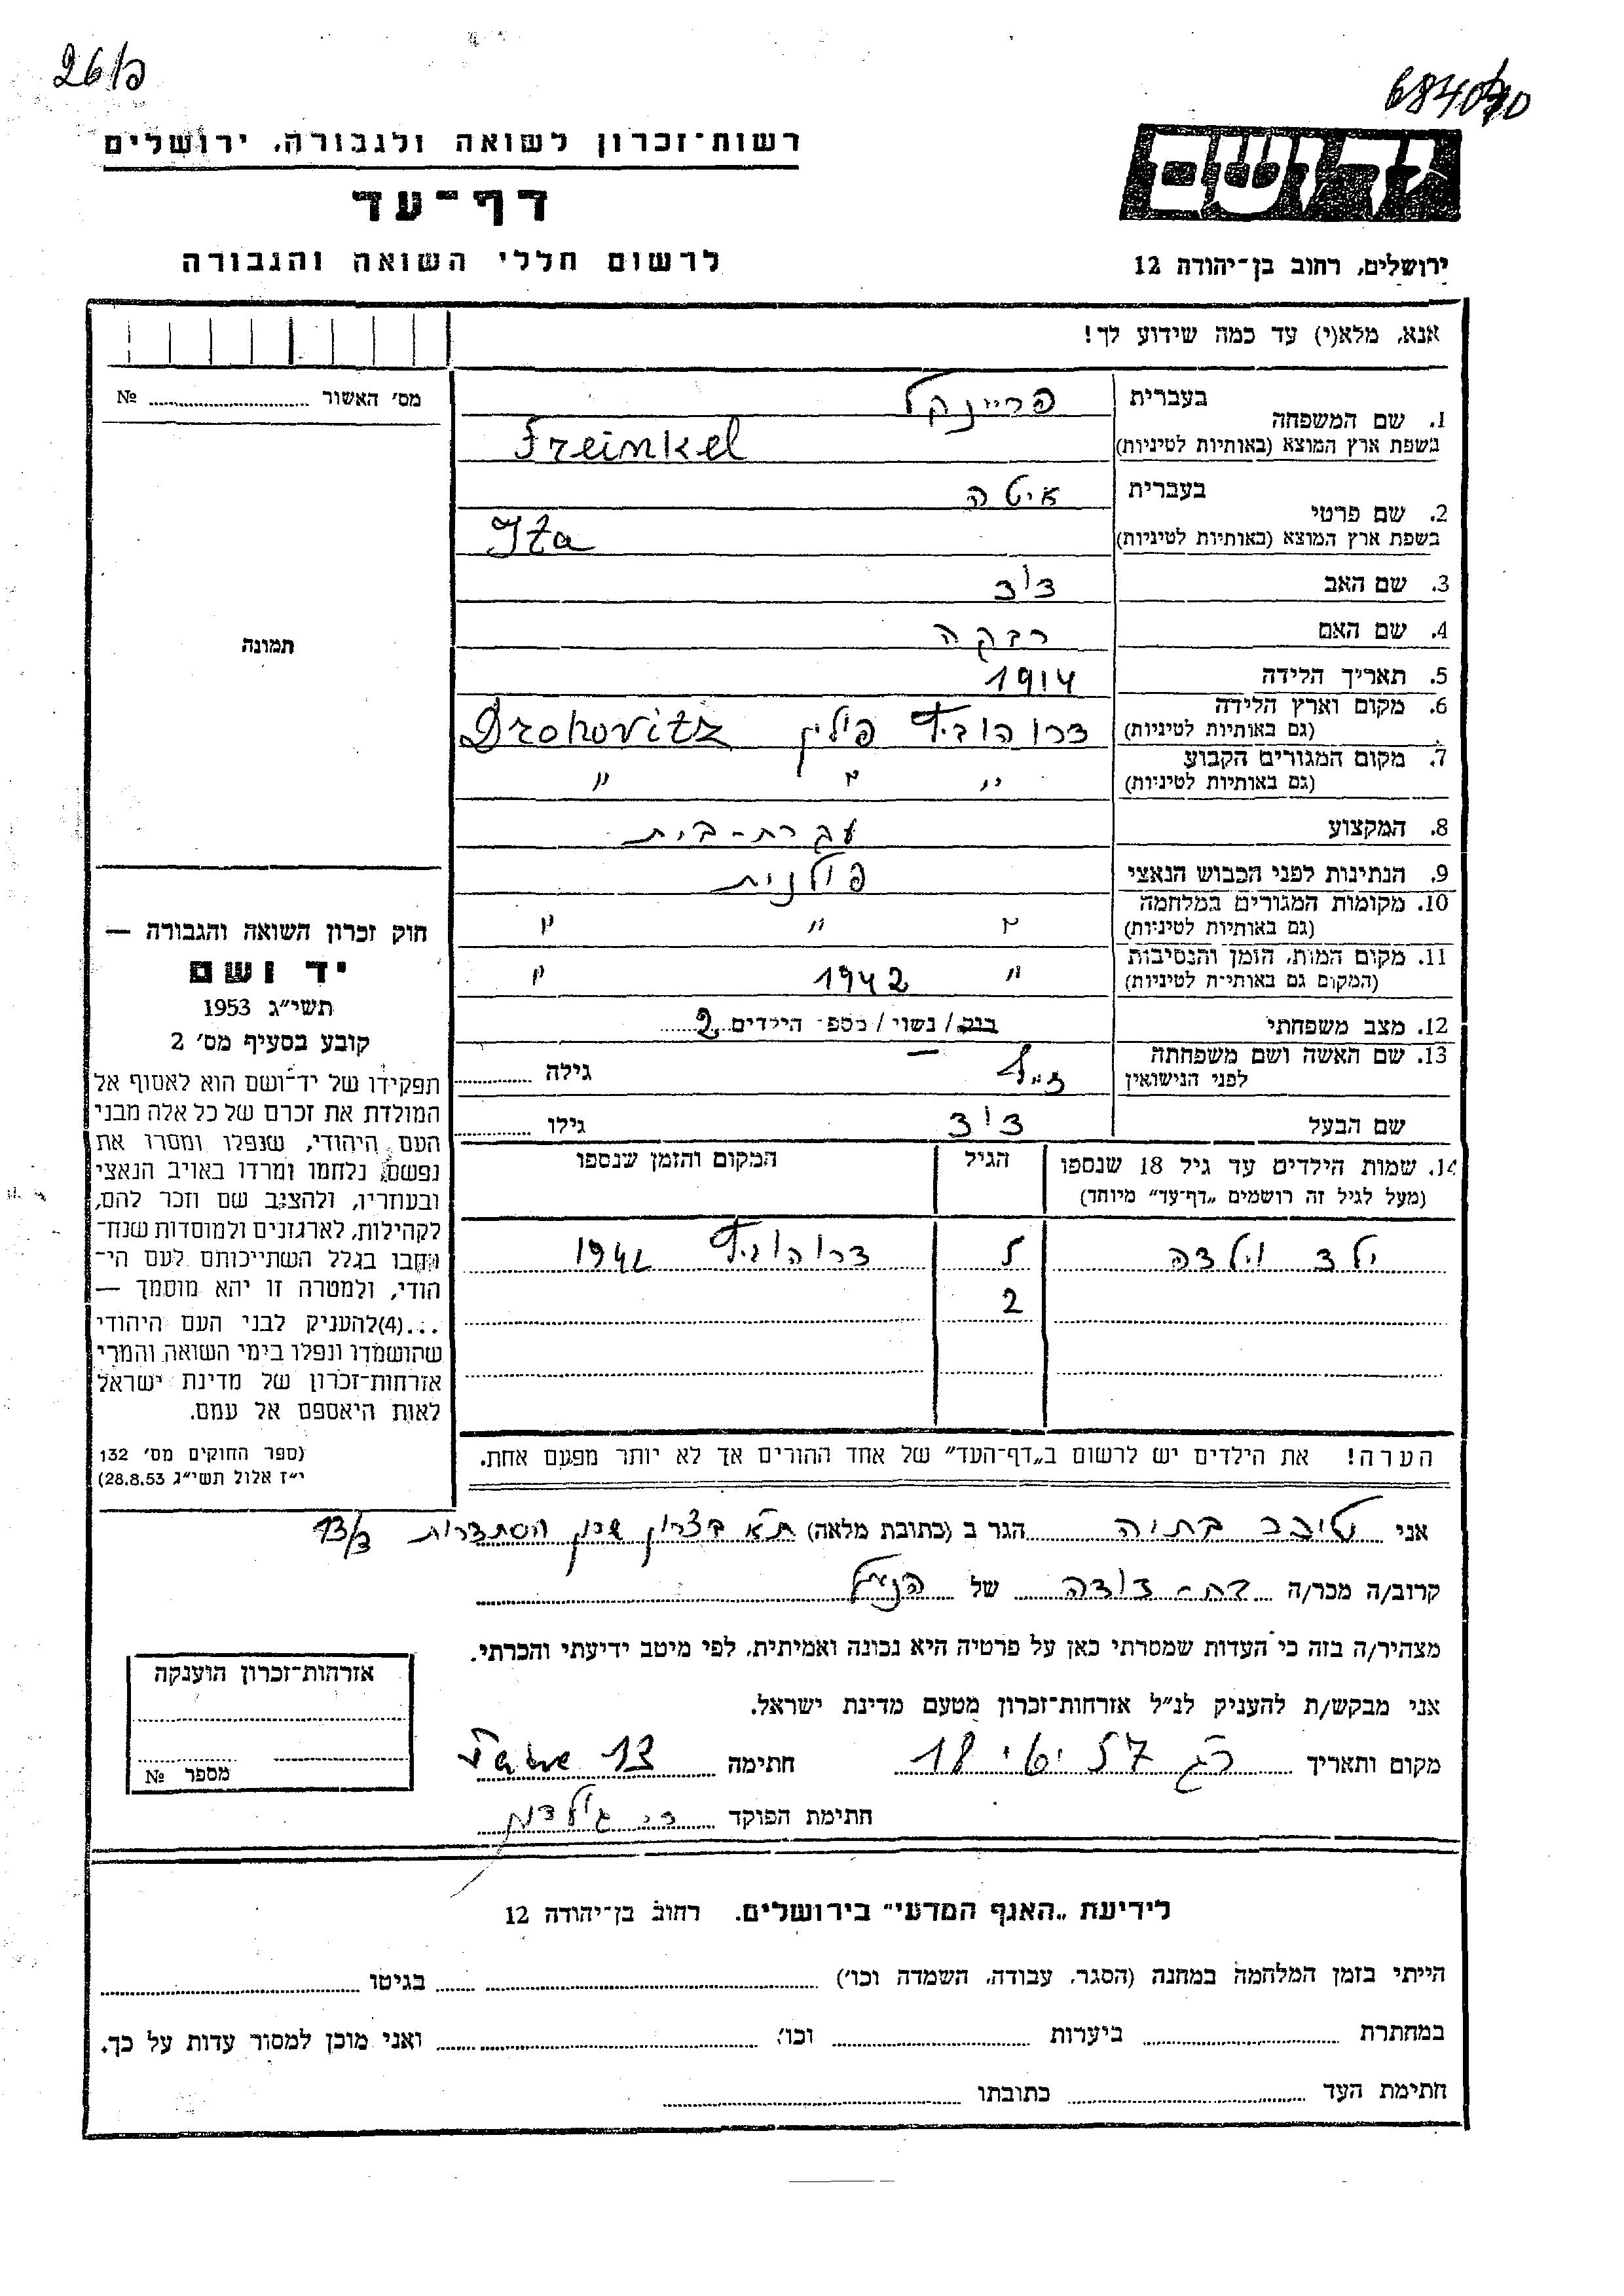 26/פ
רשות־זכרון לשואה ולגבורה, ירושלים
דף־עד
לרשום חללי השואה והגבורה
יד ושם
ירושלים, רחוב בן־יהודה 12
אנא, מלא(י) עד כמה שידוע לך!
מס׳ האשור № 
1. שם המשפחה
בעברית פריינקל
בשפת ארץ המוצא (באותיות לטיניות) Freinkel
2. שם פרטי
בעברית איטה
בשפת ארץ המוצא (באותיות לטיניות) Ita
3. שם האב דוד
4. שם האם רבקה
5. תאריך הלידה 1914
6. מקום וארץ הלידה
(גם באותיות לטיניות) דרוהוביץ פולין Drohovitz
7. מקום המגורים הקבוע
(גם באותיות לטיניות) " " "
8. המקצוע עקרת-בית
9. הנתינות לפני הכבוש הנאצי פולנית
10. מקומות המגורים במלחמה
(גם באותיות לטיניות) " " "
11. מקום המות, הזמן והנסיבות
(המקום גם באותיות לטיניות) " 1942 "
12. מצב משפחתי רווק / נשוי / מספ׳ הילדים 2
13. שם האשה ושם משפחתה
לפני הנישואין גילה
שם הבעל דוד גילו
14. שמות הילדים עד גיל 18 שנספו
(מעל לגיל זה רושמים „דף־עד" מיוחד)
הגיל
המקום והזמן שנספו
ילד וילדה 5 דרוהוביץ 1942
2
הערה! את הילדים יש לרשום ב„דף־העד" של אחד ההורים אך לא יותר מפעם אחת.
תמונה
חוק זכרון השואה והגבורה —
יד ושם
תשי״ג 1953
קובע בסעיף מס׳ 2
תפקידו של יד־ושם הוא לאסוף אל
המולדת את זכרם של כל אלה מבני
העם היהודי, שנפלו ומסרו את
נפשם, נלחמו ומרדו באויב הנאצי
ובעוזריו, ולהציב שם וזכר להם,
לקהילות, לארגונים ולמוסדות שנח־
רבו בגלל השתייכותם לעם הי־
הודי, ולמטרה זו יהא מוסמך —
...(4) להעניק לבני העם היהודי
שהושמדו ונפלו בימי השואה והמרי
אזרחות־זכרון של מדינת ישראל
לאות היאספם אל עמם.
(ספר החוקים מס׳ 132
י״ז אלול תשי״ג 28.8.53)
אני בתיה הגר ב (כתובת מלאה) ת״א בצרון שכון הסתדרות 13/3
קרוב/ה מכר/ה בת-דודה של הנ״ל
מצהיר/ה בזה כי העדות שמסרתי כאן על פרטיה היא נכונה ואמיתית, לפי מיטב ידיעתי והכרתי.
אני מבקש/ת להעניק לנ״ל אזרחות־זכרון מטעם מדינת ישראל.
מקום ותאריך רג 57 18 חתימה
חתימת הפוקד
אזרחות־זכרון הוענקה
מספר №
לידיעת „האגף המדעי" בירושלים. רחוב בן־יהודה 12
הייתי בזמן המלחמה במחנה (הסגר, עבודה, השמדה וכו׳) בגיטו
במחתרת ביערות וכו׳ ואני מוכן למסור עדות על כך.
חתימת העד כתובתו